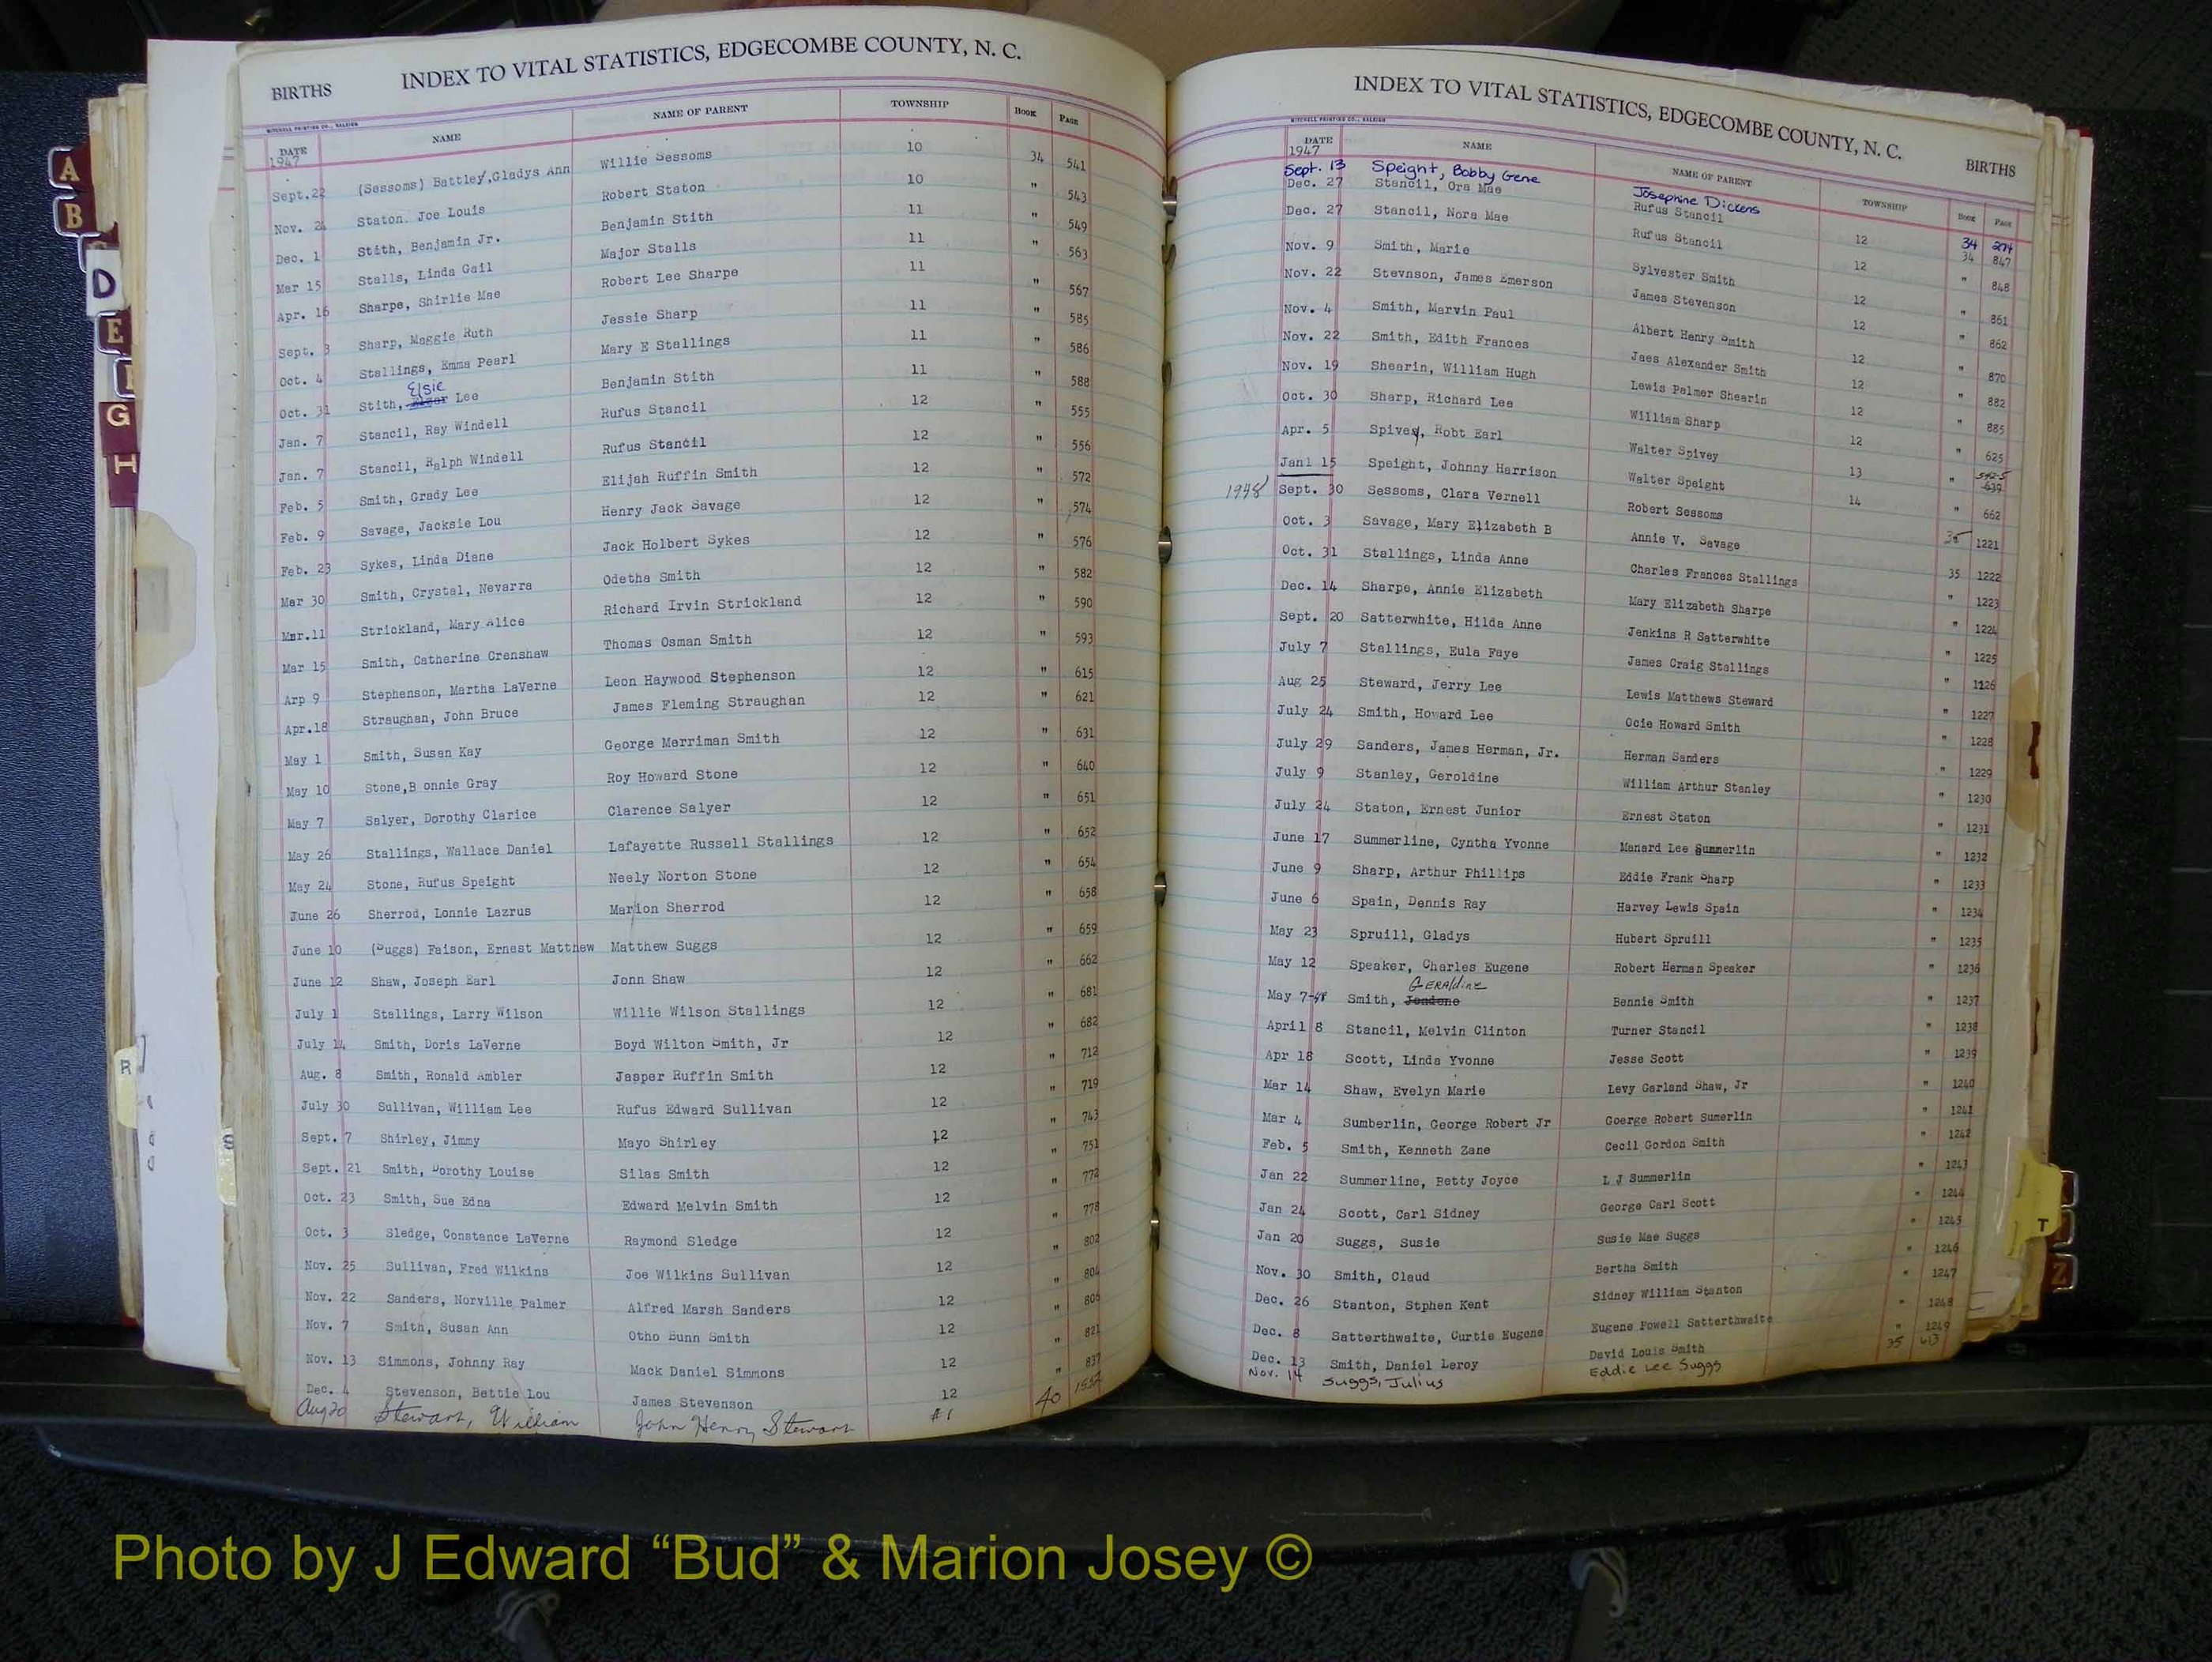 BIRTHS INDEX TO VITAL STATISTICS, EDGECOMBE COUNTY, N. C.
MITCHELL PRINTING CO., RALEIGH
DATE NAME NAME OF PARENT TOWNSHIP BOOK PAGE
1947
Sept.22 (Sessoms) Battley,Gladys Ann Willie Sessoms 10 34 541
Nov. 21 Staton. Joe Louis Robert Staton 10 " 543
Dec. 1 Stith, Benjamin Jr. Benjamin Stith 11 " 549
Mar 15 Stalls, Linda Gail Major Stalls 11 " 563
Apr. 16 Sharpe, Shirlie Mae Robert Lee Sharpe 11 " 567
Sept. 3 Sharp, Maggie Ruth Jessie Sharp 11 " 585
Oct. 4 Stallings, Emma Pearl Mary E Stallings 11 " 586
Elsie
Oct. 31 Stith, Lee Benjamin Stith 11 " 588
Jan. 7 Stancil, Ray Windell Rufus Stancil 12 " 555
Jan. 7 Stancil, Ralph Windell Rufus Stancil 12 " 556
Feb. 5 Smith, Grady Lee Elijah Ruffin Smith 12 " 572
Feb. 9 Savage, Jacksie Lou Henry Jack Savage 12 " 574
Feb. 23 Sykes, Linda Diane Jack Holbert Sykes 12 " 576
Mar 30 Smith, Crystal, Nevarra Odetha Smith 12 " 582
Mar.11 Strickland, Mary Alice Richard Irvin Strickland 12 " 590
Mar 15 Smith, Catherine Crenshaw Thomas Osman Smith 12 " 593
Arp 9 Stephenson, Martha LaVerne Leon Haywood Stephenson 12 " 615
Apr.18 Straughan, John Bruce James Fleming Straughan 12 " 621
May 1 Smith, Susan Kay George Merriman Smith 12 " 631
May 10 Stone,B onnie Gray Roy Howard Stone 12 " 640
May 7 Salyer, Dorothy Clarice Clarence Salyer 12 " 651
May 26 Stallings, Wallace Daniel Lafayette Russell Stallings 12 " 652
May 24 Stone, Rufus Speight Neely Norton Stone 12 " 654
June 26 Sherrod, Lonnie Lazrus Marion Sherrod 12 " 658
June 10 (Suggs) Faison, Ernest Matthew Matthew Suggs 12 " 659
June 12 Shaw, Joseph Earl Jonn Shaw 12 " 662
July 1 Stallings, Larry Wilson Willie Wilson Stallings 12 " 681
July 14 Smith, Doris LaVerne Boyd Wilton Smith, Jr 12 " 682
Aug. 8 Smith, Ronald Ambler Jasper Ruffin Smith 12 " 712
July 30 Sullivan, William Lee Rufus Edward Sullivan 12 " 719
Sept. 7 Shirley, Jimmy Mayo Shirley 12 " 743
Sept. 21 Smith, Dorothy Louise Silas Smith 12 " 751
Oct. 23 Smith, Sue Edna Edward Melvin Smith 12 " 772
Oct. 3 Sledge, Constance LaVerne Raymond Sledge 12 " 778
Nov. 25 Sullivan, Fred Wilkins Joe Wilkins Sullivan 12 " 802
Nov. 22 Sanders, Norville Palmer Alfred Marsh Sanders 12 " 804
Nov. 7 Smith, Susan Ann Otho Bunn Smith 12 " 806
Nov. 13 Simmons, Johnny Ray Mack Daniel Simmons 12 " 821
Dec. 4 Stevenson, Bettie Lou James Stevenson 12 " 837
Aug 20 Stewart, William John Henry Stewart #1 40 1552
INDEX TO VITAL STATISTICS, EDGECOMBE COUNTY, N. C. BIRTHS
MITCHELL PRINTING CO., RALEIGH
DATE NAME NAME OF PARENT TOWNSHIP BOOK PAGE
1947
Sept. 13 Speight, Bobby Gene Josephine Dickens 34 274
Dec. 27 Stancil, Ora Mae Rufus Stancil 12 34 847
Dec. 27 Stancil, Nora Mae Rufus Stancil 12 " 848
Nov. 9 Smith, Marie Sylvester Smith 12 " 861
Nov. 22 Stevnson, James Emerson James Stevenson 12 " 862
Nov. 4 Smith, Marvin Paul Albert Henry Smith 12 " 870
Nov. 22 Smith, Edith Frances Jaes Alexander Smith 12 " 882
Nov. 19 Shearin, William Hugh Lewis Palmer Shearin 12 " 885
Oct. 30 Sharp, Richard Lee William Sharp 12 " 625
Apr. 5 Spivey, Robt Earl Walter Spivey 13 " 639
Jan1 15 Speight, Johnny Harrison Walter Speight 14 " 662
1948 Sept. 30 Sessoms, Clara Vernell Robert Sessoms 35 1221
Oct. 3 Savage, Mary Elizabeth B Annie V. Savage 35 1222
Oct. 31 Stallings, Linda Anne Charles Frances Stallings " 1223
Dec. 14 Sharpe, Annie Elizabeth Mary Elizabeth Sharpe " 1224
Sept. 20 Satterwhite, Hilda Anne Jenkins R Satterwhite " 1225
July 7 Stallings, Eula Faye James Craig Stallings " 1126
Aug 25 Steward, Jerry Lee Lewis Matthews Steward " 1227
July 24 Smith, Howard Lee Ocie Howard Smith " 1228
July 29 Sanders, James Herman, Jr. Herman Sanders " 1229
July 9 Stanley, Geroldine William Arthur Stanley " 1230
July 24 Staton, Ernest Junior Ernest Staton " 1231
June 17 Summerline, Cyntha Yvonne Manard Lee Summerlin " 1232
June 9 Sharp, Arthur Phillips Eddie Frank Sharp " 1233
June 6 Spain, Dennis Ray Harvey Lewis Spain " 1234
May 23 Spruill, Gladys Hubert Spruill " 1235
May 12 Speaker, Charles Eugene Robert Herman Speaker " 1236
GERAldine
May 7-48 Smith, Jendene Bennie Smith " 1237
April 8 Stancil, Melvin Clinton Turner Stancil " 1238
Apr 18 Scott, Linda Yvonne Jesse Scott " 1239
Mar 14 Shaw, Evelyn Marie Levy Garland Shaw, Jr " 1240
Mar 4 Sumberlin, George Robert Jr Goerge Robert Sumerlin " 1241
Feb. 5 Smith, Kenneth Zane Cecil Gordon Smith " 1242
Jan 22 Summerline, Betty Joyce L J Summerlin " 1243
Jan 24 Scott, Carl Sidney George Carl Scott " 1244
Jan 20 Suggs, Susie Susie Mae Suggs " 1245
Nov. 30 Smith, Claud Bertha Smith " 1246
Dec. 26 Stanton, Stphen Kent Sidney William Stanton " 1247
Dec. 8 Satterthwaite, Curtie Eugene Eugene Powell Satterthwaite " 1248
Dec. 13 Smith, Daniel Leroy David Louis Smith " 1249
Nov. 14 Suggs, Julius Eddie Lee Suggs 35 613
A
B
D
E
G
H
R
S
T
Z
Photo by J Edward “Bud” & Marion Josey ©